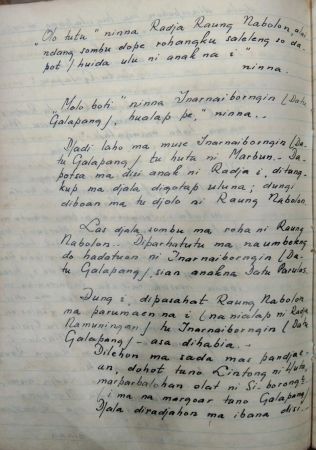 "Olo tutu" ninna Radja Raung Nabolon, alai
ndang sombu dope rohangku saleleng so da-
pot / huida ulu ni anak na i"
ninna.
"Molo boti" ninna Inarnaiborngin (Datu
Galapang), hualap pe," ninna..
Djadi laho ma muse Inarnaiborngin (Da-
tu Galapang) tu huta ni Marbun.- Da-
potsa ma disi anak ni Radja i, ditang-
kup ma djala digotap uluna; dungi
diboan ma tu djolo ni Raung Nabolon.
Las djala sombu ma roha ni Raung
Nabolon.. Diparhatutu ma naumbokng
do hadatuon ni Inarnaiborngin (Da-
tu Galapang), sian anakna Datu Parulas.
Dung i, dipasahat Raung Nabolon
ma parumaen na i (na nialap ni Radja
Mamuningan) tu Inarnaiborngin (Datu
Galapang) - asa dihabia.-
Dilehon ma sada mas pandjae-
an, dohot tano Lintong ni Huta,
marparbalohan olat ni Si-borong2
(i ma na margoar tano Galapang)
Djala diradjahon ma ibana disi.-